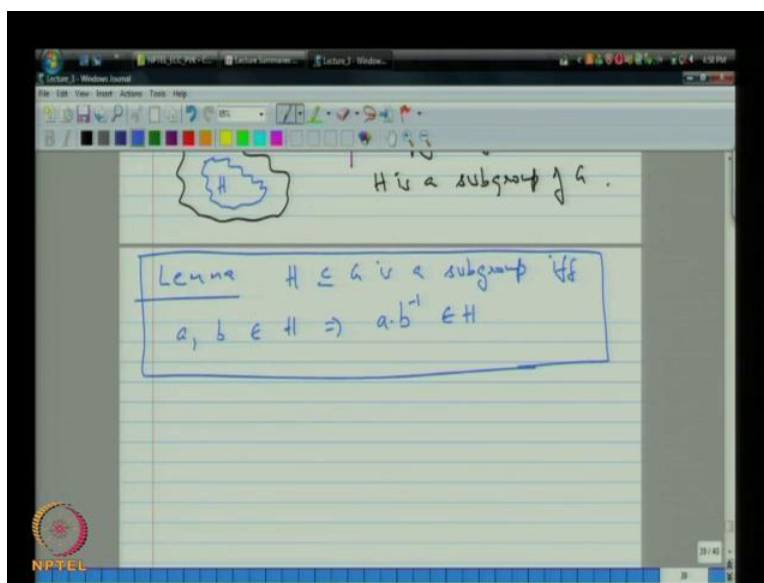 Lecture_3 - Windows Journal
File Edit View Insert Actions Tools Help
H
H is a subgroup of G.
Lemma H ⊆ G is a subgroup iff
a, b ∈ H ⇒ a·b⁻¹ ∈ H
NPTEL